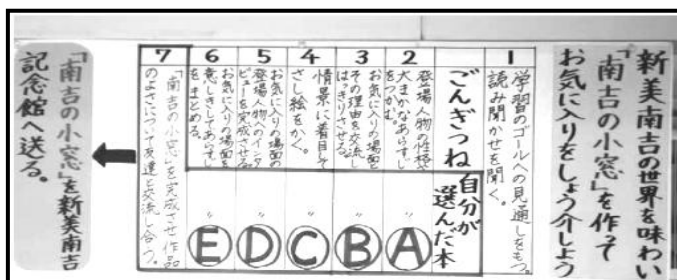 新美南吉の世界を味わい
「南吉の小窓」を作って
お気に入りをしょう介しよう
1
学習のゴールへの見通しをもつ。
読み聞かせを聞く。
ごんぎつね
自分が
選んだ本
2
登場人物の性格や
大まかなあらすじ
をつかむ。
〃
A
3
お気に入りの場面と
その理由を交流し
はっきりさせる。
〃
B
4
情景に着目して
さし絵をかく。
〃
C
5
お気に入りの場面の
登場人物へのインタ
ビューを完成させる。
〃
D
6
お気に入りの場面を
意しきしてあらすじ
をまとめる。
〃
E
7
「南吉の小窓」を完成させ、作品
のよさについて友達と交流し合う。
「南吉の小窓」を新美南吉
記念館へ送る。